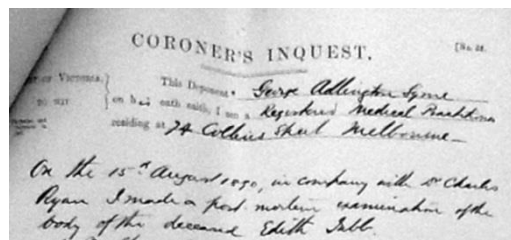 CORONER'S INQUEST.
[No. 21.
of Victoria,
TO WIT
This Deponent George Adlington Syme
on his oath saith, I am a Registered Medical Practitioner
residing at 74 Collins Street Melbourne
On the 15th August 1890, in company with Dr Charles
Ryan I made a post mortem examination of the
body of the deceased Edith